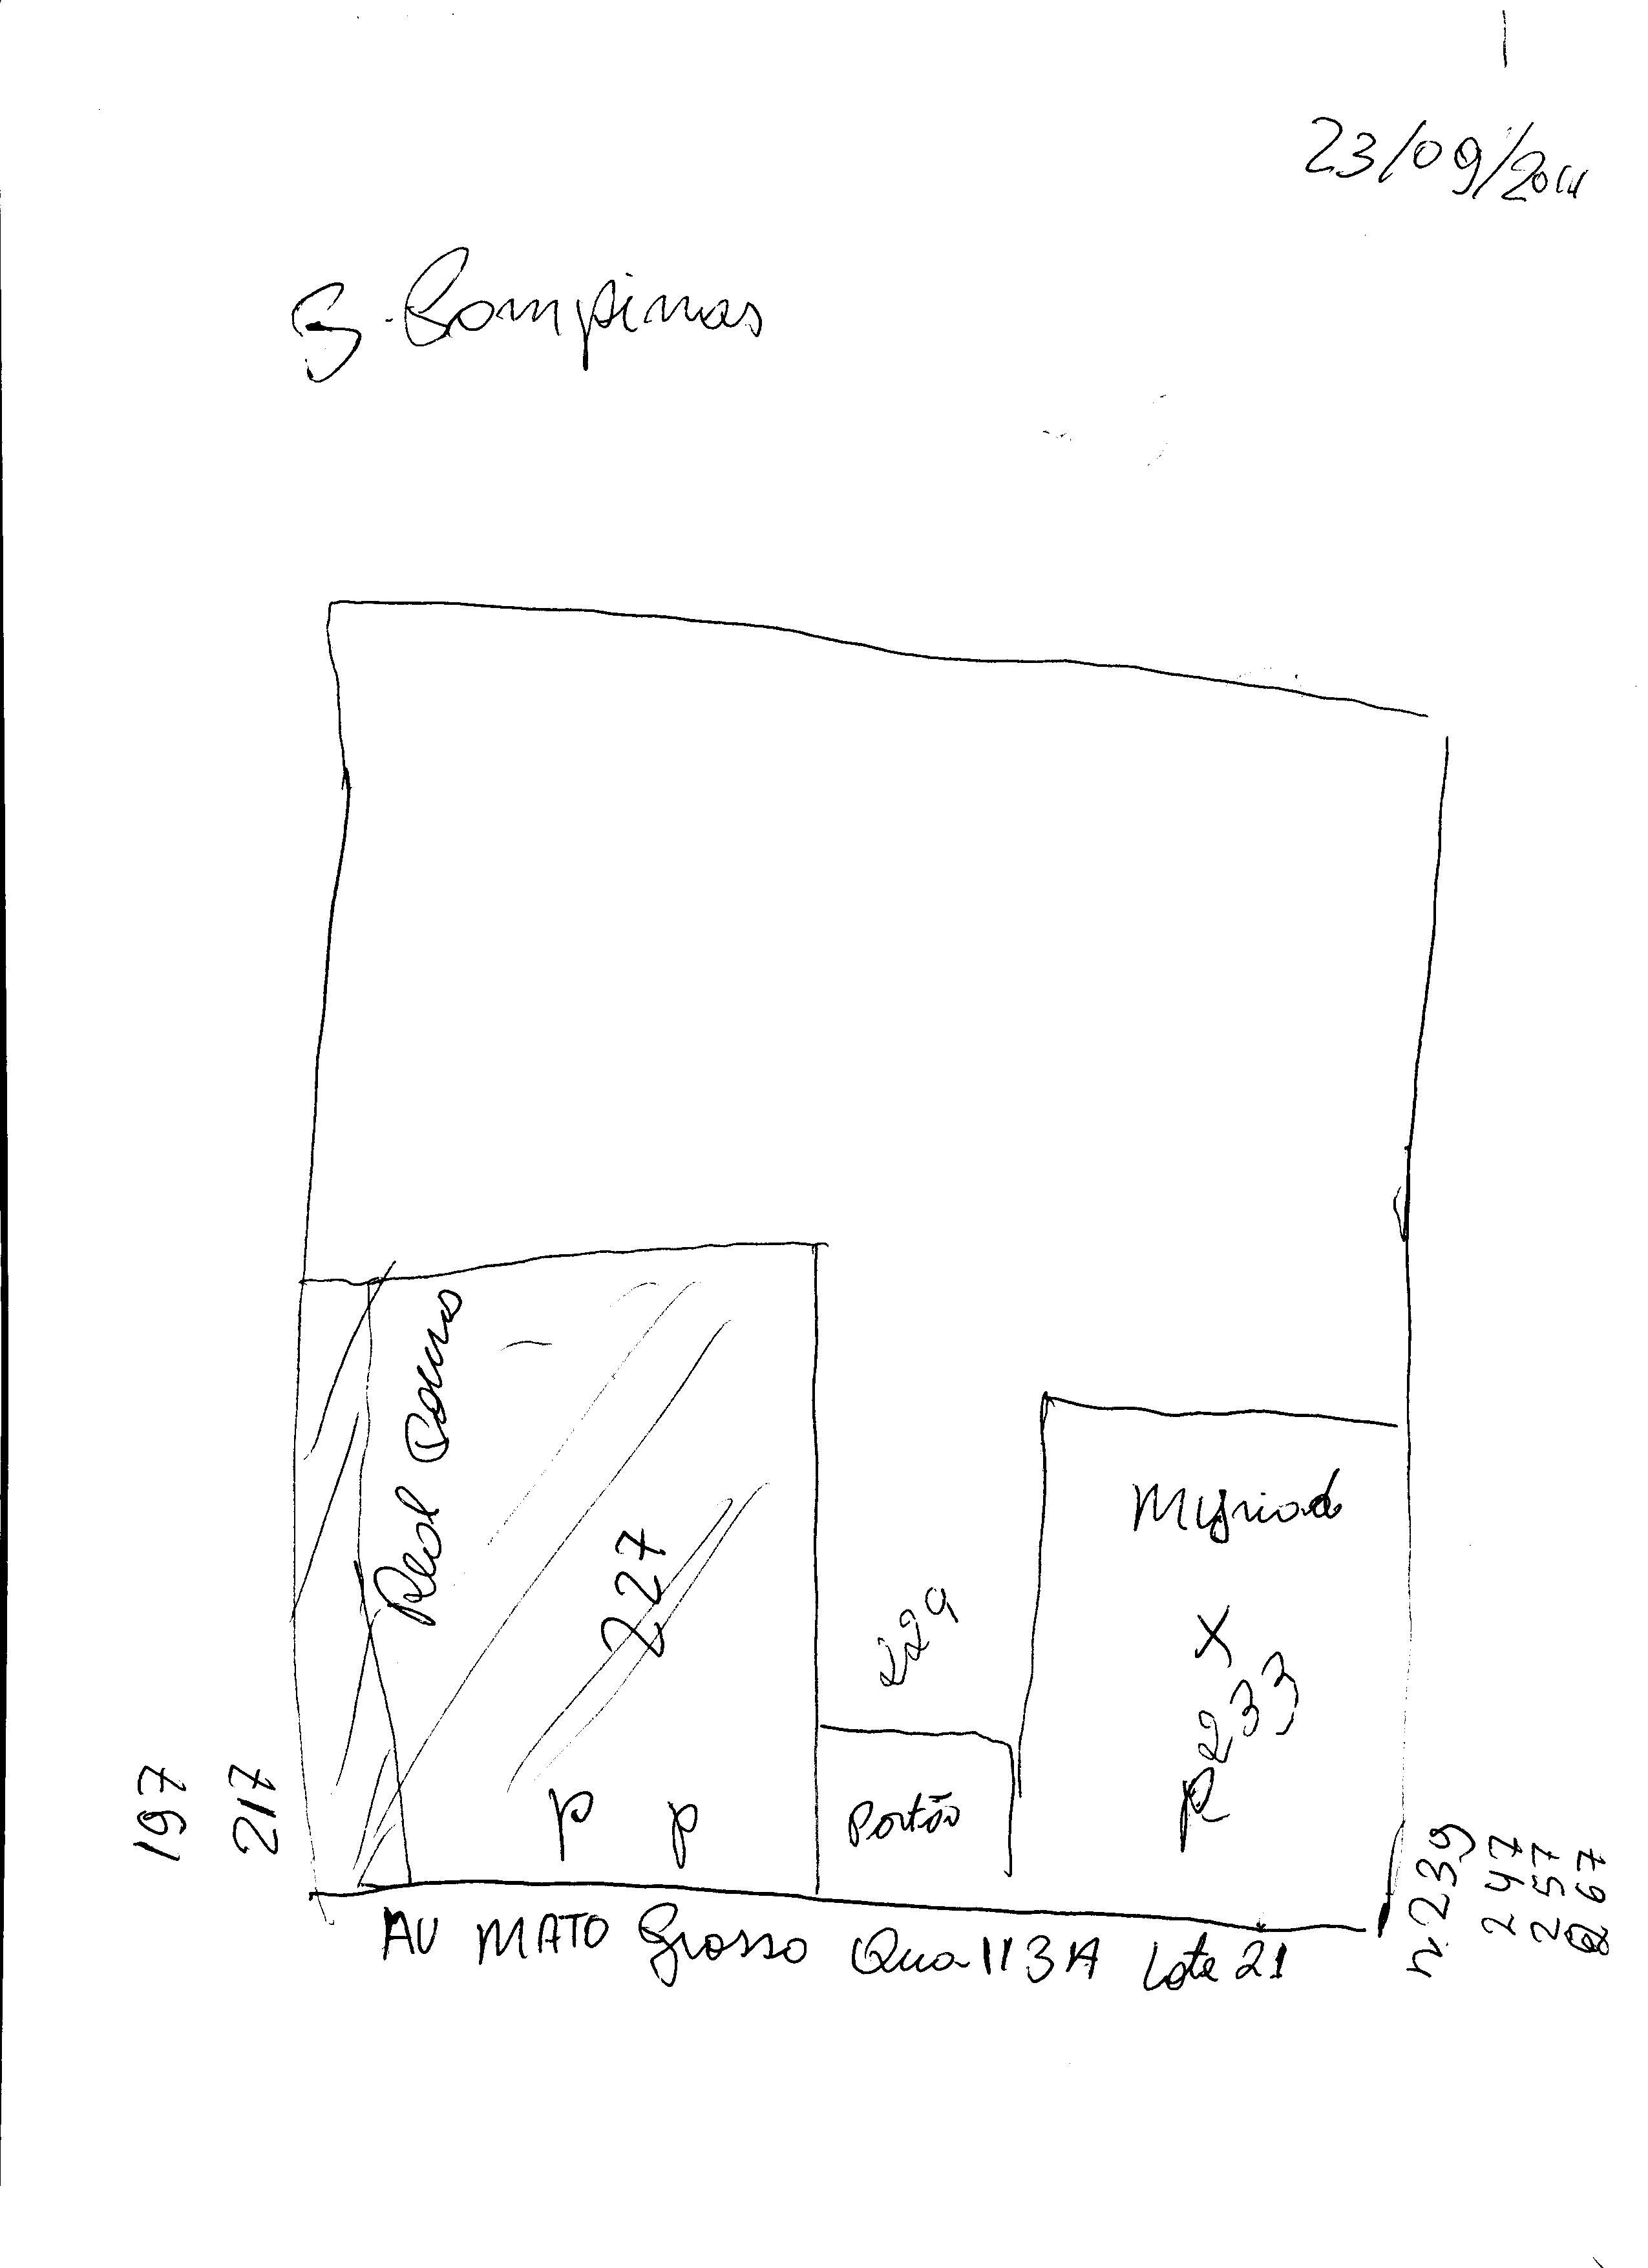 23/09/2011
S. Campinas
Real Couro
227
229
Myriad
X
P 233
P P
Portão
197
217
n. 239
247
257
267
AV MATO Grosso Qua-113A Lote 21